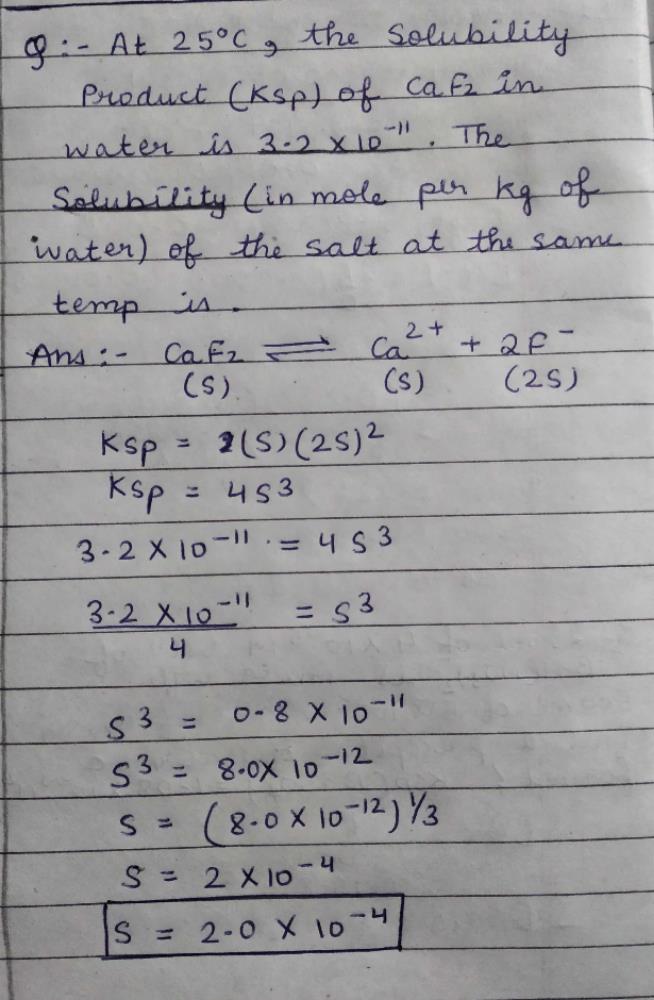 Q :- At 25°C, the Solubility
Product (Ksp) of CaF2 in
water is 3.2 × 10⁻¹¹. The
Solubility (in mole per kg of
water) of the salt at the same
temp is.
Ans :- CaF2 ⇌ Ca²⁺ + 2F⁻
(S) (S) (2S)
Ksp = (S)(2S)²
Ksp = 4S³
3.2 × 10⁻¹¹ = 4S³
3.2 × 10⁻¹¹ = S³
4
S³ = 0.8 × 10⁻¹¹
S³ = 8.0 × 10⁻¹²
S = (8.0 × 10⁻¹²)^1/3
S = 2 × 10⁻⁴
S = 2.0 × 10⁻⁴